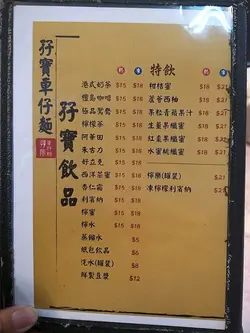 孖寶車仔麵
孖寶飲品
熱 凍
港式奶茶 $15 $18
極品鴛鴦 $15 $18
檸檬茶 $15 $18
阿華田 $15 $18
朱古力 $15 $18
好立克 $15 $18
西洋菜蜜 $15 $18
杏仁霜 $15 $18
利賓納 $15 $18
檸蜜 $15 $18
檸水 $15 $18
蒸餾水 $5
紙包飲品 $6
汽水(罐裝) $5
鮮製豆漿 $12
特飲
熱 凍
柑桔蜜 $18 $21
蘆薈西柚 $18 $21
果粒青蘋果汁 $18 $21
生薑果纖蜜 $18 $21
紅棗果纖蜜 $18 $21
水蜜桃纖蜜 $18 $21
檸樂(罐裝) $21
凍檸檬利賓納 $21